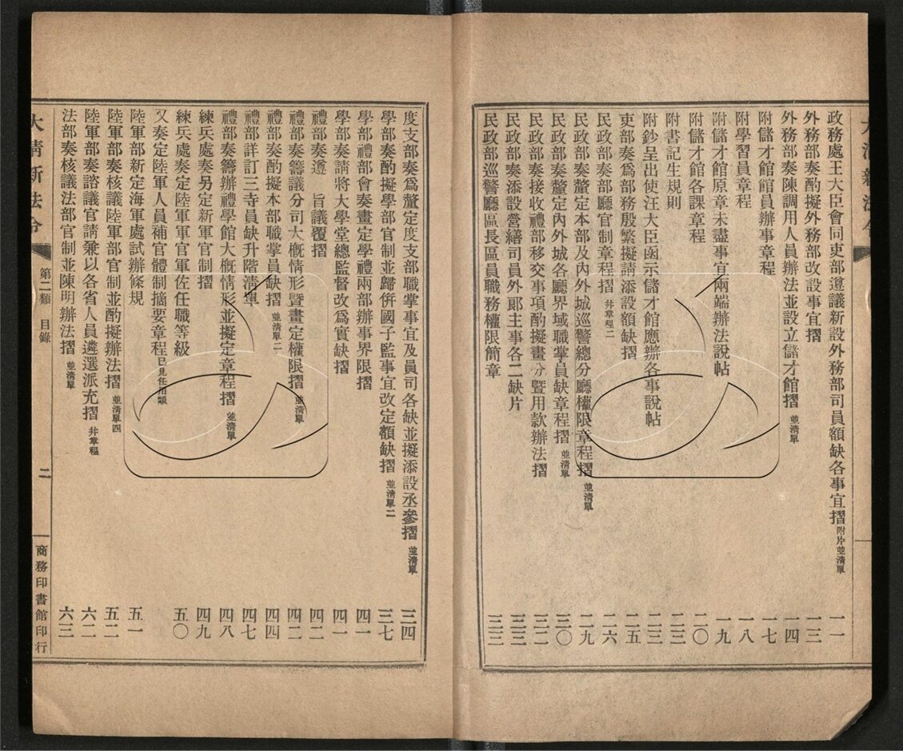 政務處王大臣會同吏部遵議新設外務部司員額缺各事宜摺 附片並清單 一一
外務部奏酌擬外務部改設事宜摺 一三
外務部奏陳調用人員辦法並設立儲才館摺 並清單 一四
附儲才館館員辦事章程 一七
附學習員章程 一八
附儲才館原章未盡事宜兩端辦法說帖 一九
附儲才館各課章程 二〇
附書記生規則 二三
附鈔呈出使汪大臣函示儲才館應辦各事說帖 二三
吏部奏爲部務殷繁擬請添設額缺摺 二五
民政部奏部廳官制章程摺 并章程二 二六
民政部奏釐定本部及內外城巡警總分廳權限章程摺 並清單 二九
民政部奏釐定內外城各廳界域職掌員缺章程摺 並清單 三〇
民政部奏接收禮部移交事項酌擬畫分暨用款辦法摺 三二
民政部奏添設營繕司員外郎主事各二缺片 三三
民政部巡警廳區長區員職務權限簡章 三三
度支部奏爲釐定度支部職掌事宜及員司各缺並擬添設丞參摺 並清單 三四
學部奏酌擬學部官制並歸併國子監事宜改定額缺摺 並清單二 三七
學部禮部會奏畫定學禮兩部辦事界限摺 四一
學部奏請將大學堂總監督改爲實缺摺 四一
禮部奏遵 旨議覆摺 四二
禮部奏籌議分司大概情形暨畫定權限摺 並清單 四二
禮部奏酌擬本部職掌員缺摺 並清單二 四四
禮部詳訂三寺員缺升階清單 四七
禮部奏籌辦禮學館大概情形並擬定章程摺 並清單 四八
練兵處奏另定新軍官制摺 四九
練兵處奏定陸軍軍官軍佐任職等級 五〇
又奏定陸軍人員補官體制摘要章程 已見任用類
陸軍部新定海軍處試辦條規 五一
陸軍部奏核議陸軍部官制並酌擬辦法摺 並清單四 五二
陸軍部奏諮議官請兼以各省人員遴選派充摺 并章程 六二
法部奏核議法部官制並陳明辦法摺 並清單 六三
大清新法令 第二類 目錄 二 商務印書館印行